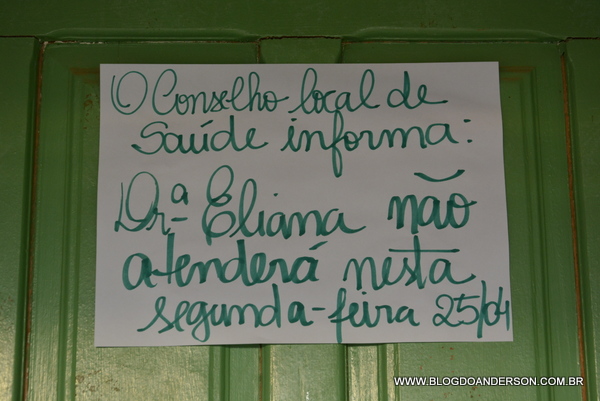 O Conselho local de
Saúde informa:
Drª Eliana não
atenderá nesta
segunda-feira 25/04
WWW.BLOGDOANDERSON.COM.BR